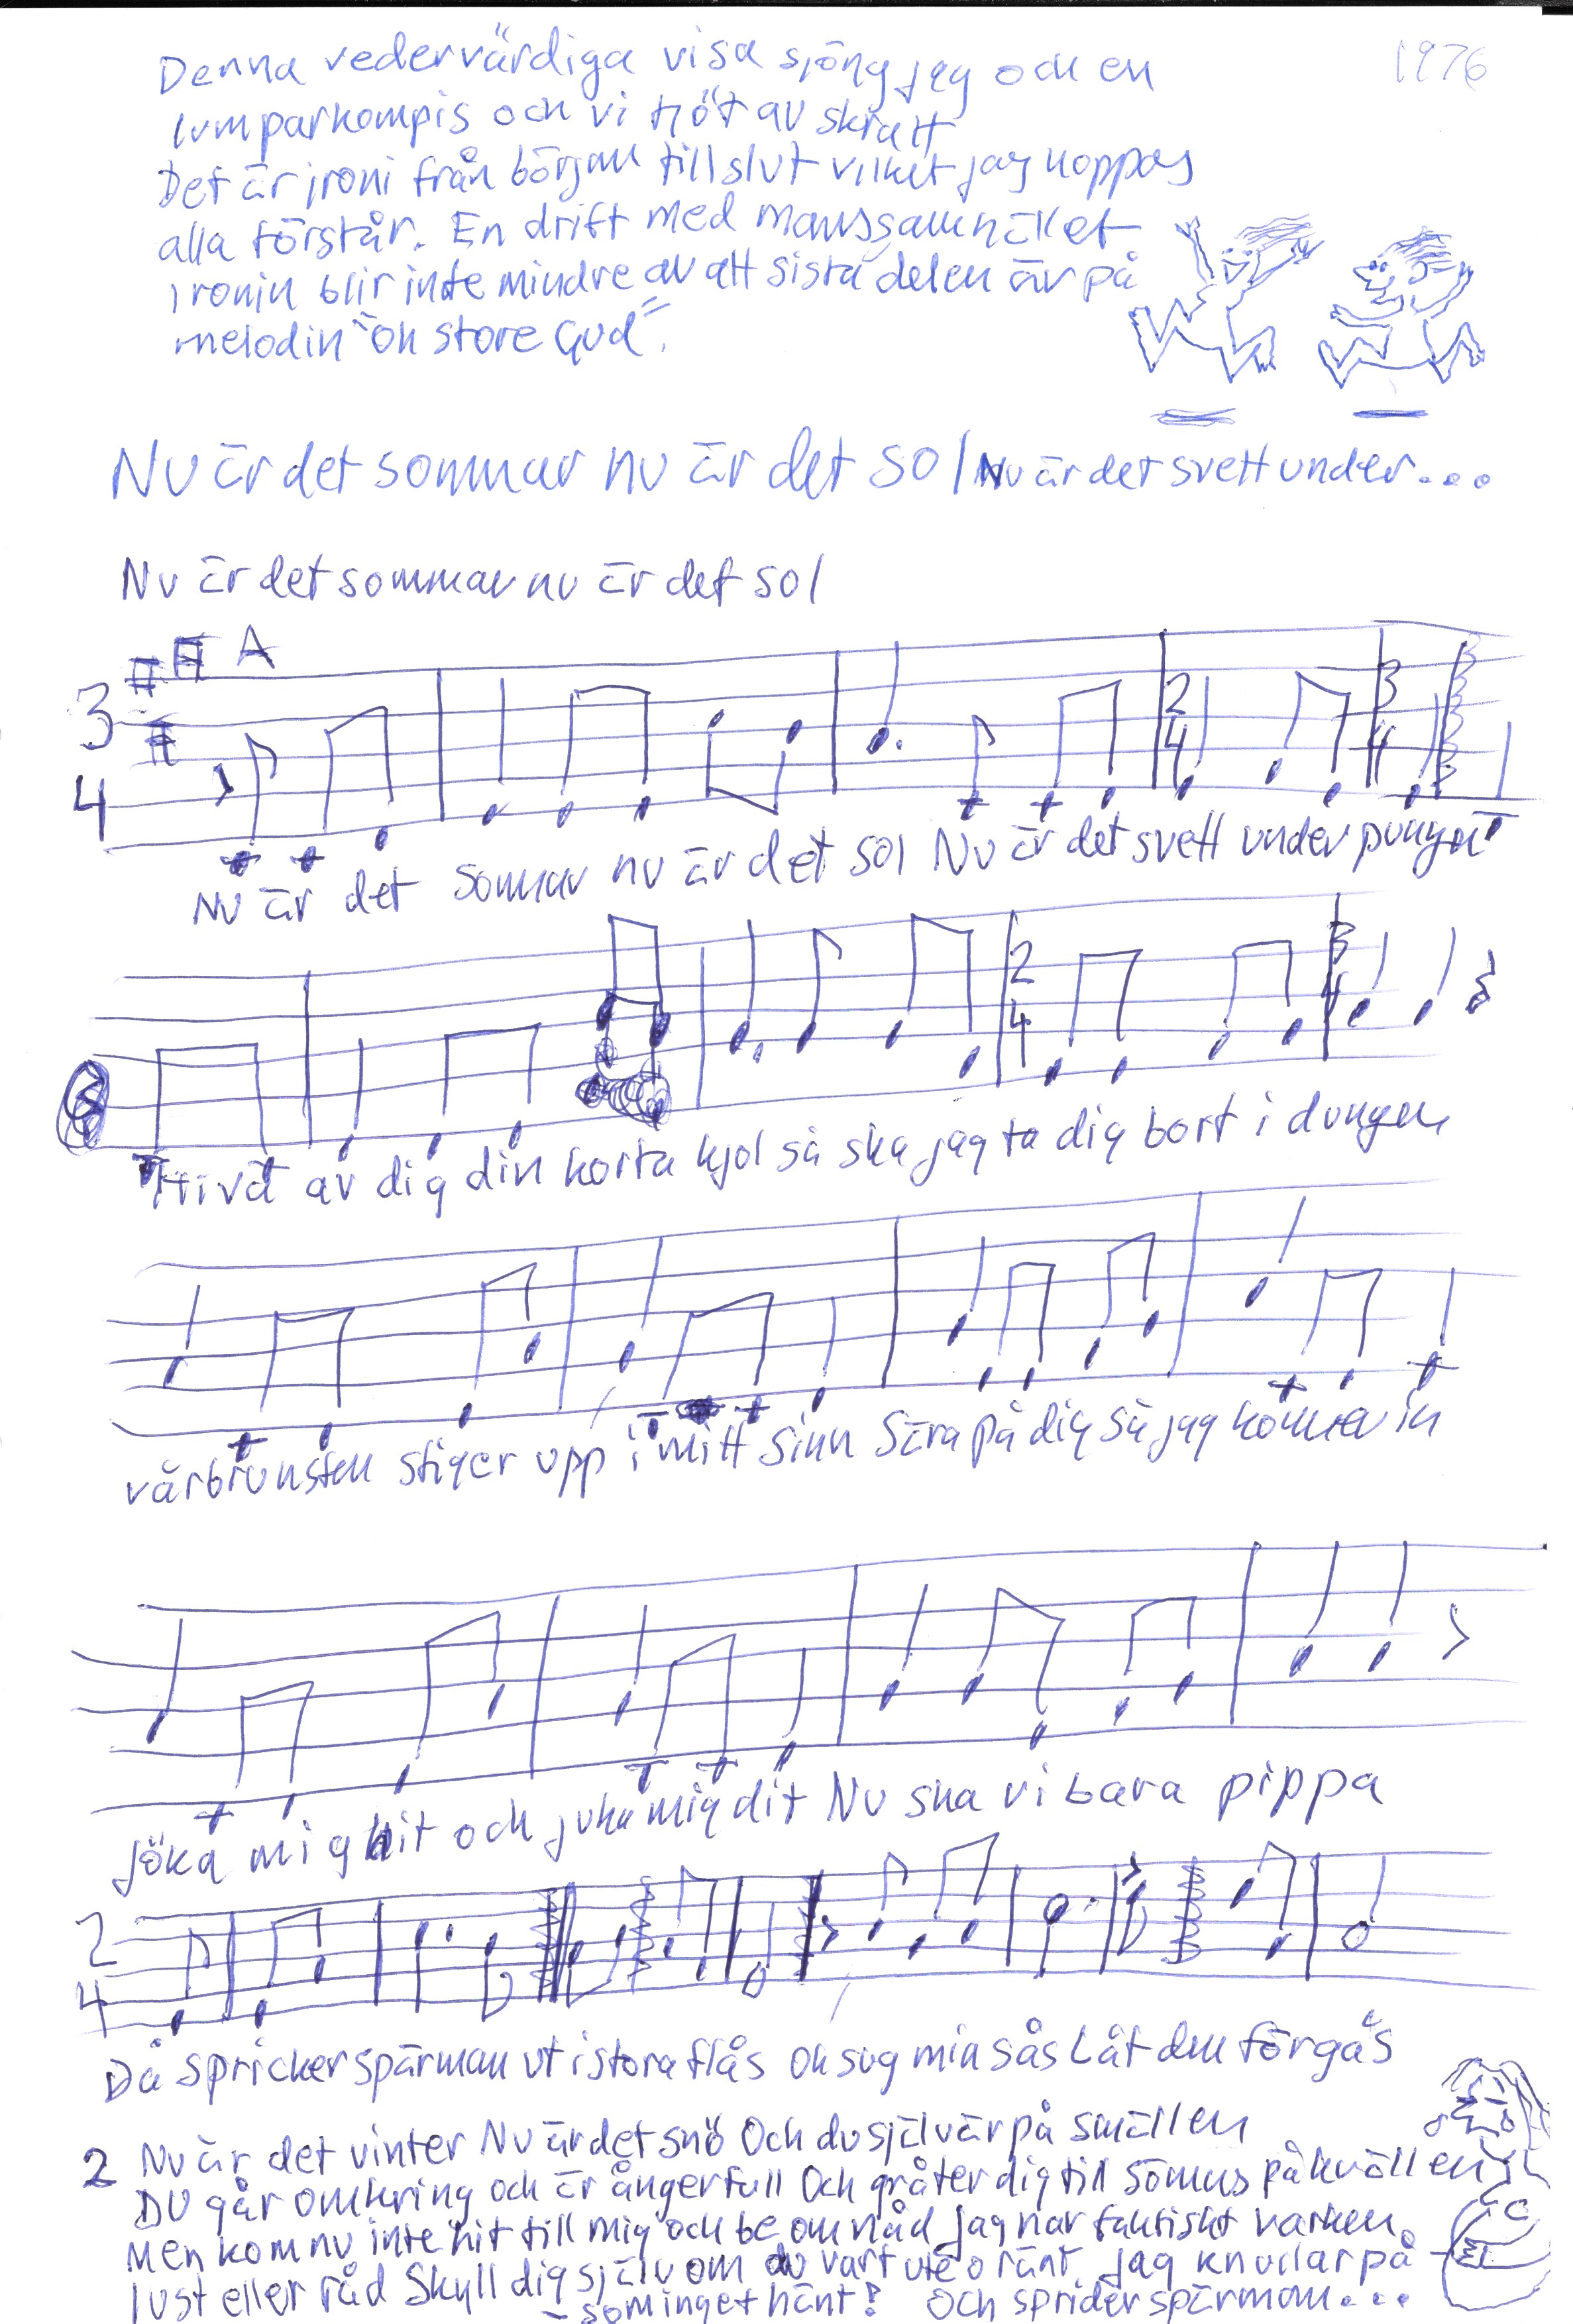 1976
Denna vedervärdiga visa sjöng jag och en
lumparkompis och vi tjöt av skratt
Det är ironi från början till slut vilket jag hoppas
alla förstår. En drift med manssamhället
Ironin blir inte mindre av att sista delen är på
melodin "Oh store Gud".
Nu är det sommar nu är det sol Nu är det svett under...
Nu är det sommar nu är det sol
A
3
4
2
4
3
4
Nu är det sommar nu är det sol Nu är det svett under pungen
2
4
3
4
Hiva av dig din korta kjol så ska jag ta dig bort i dungen
vårbrunsten stiger upp i mitt sinn Sära på dig så jag kommer in
Jöka mig hit och juka mig dit Nu ska vi bara pippa
2
4
Då spricker spärman ut i stora flås Oh sug min sås Låt den förgås
2 Nu är det vinter Nu är det snö Och du själv är på smällen
Du går omkring och är ångerfull Och gråter dig till sömns på kvällen
Men kom nu inte hit till mig och be om nåd Jag har faktiskt varken
lust eller råd Skyll dig själv om du vart ute o ränt Jag knullar på
- som inget hänt! Och sprider spärman...